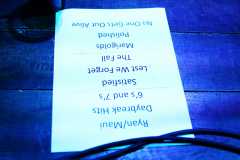 Ryan/Maui
Daybreak Hits
6's and 7's
Satisfied
Lest We Forget
The Fall
Marigolds
Polished
No One Gets Out Alive